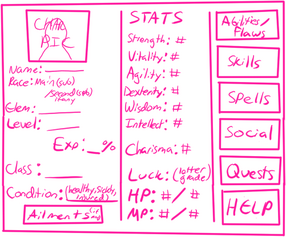 CHAR
PIC
Name:
Race: Main(sub)
/Second(sub)
Elem:
Level:
Exp: _%
Class:
Condition: (healthy, sick, injured)
Ailments
STATS
Strength: #
Vitality: #
Agility: #
Dexterity: #
Wisdom: #
Intellect: #
Charisma: #
Luck: (letter grade)
HP: #/#
MP: #/#
Abilities/
Flaws
Skills
Spells
Social
Quests
HELP